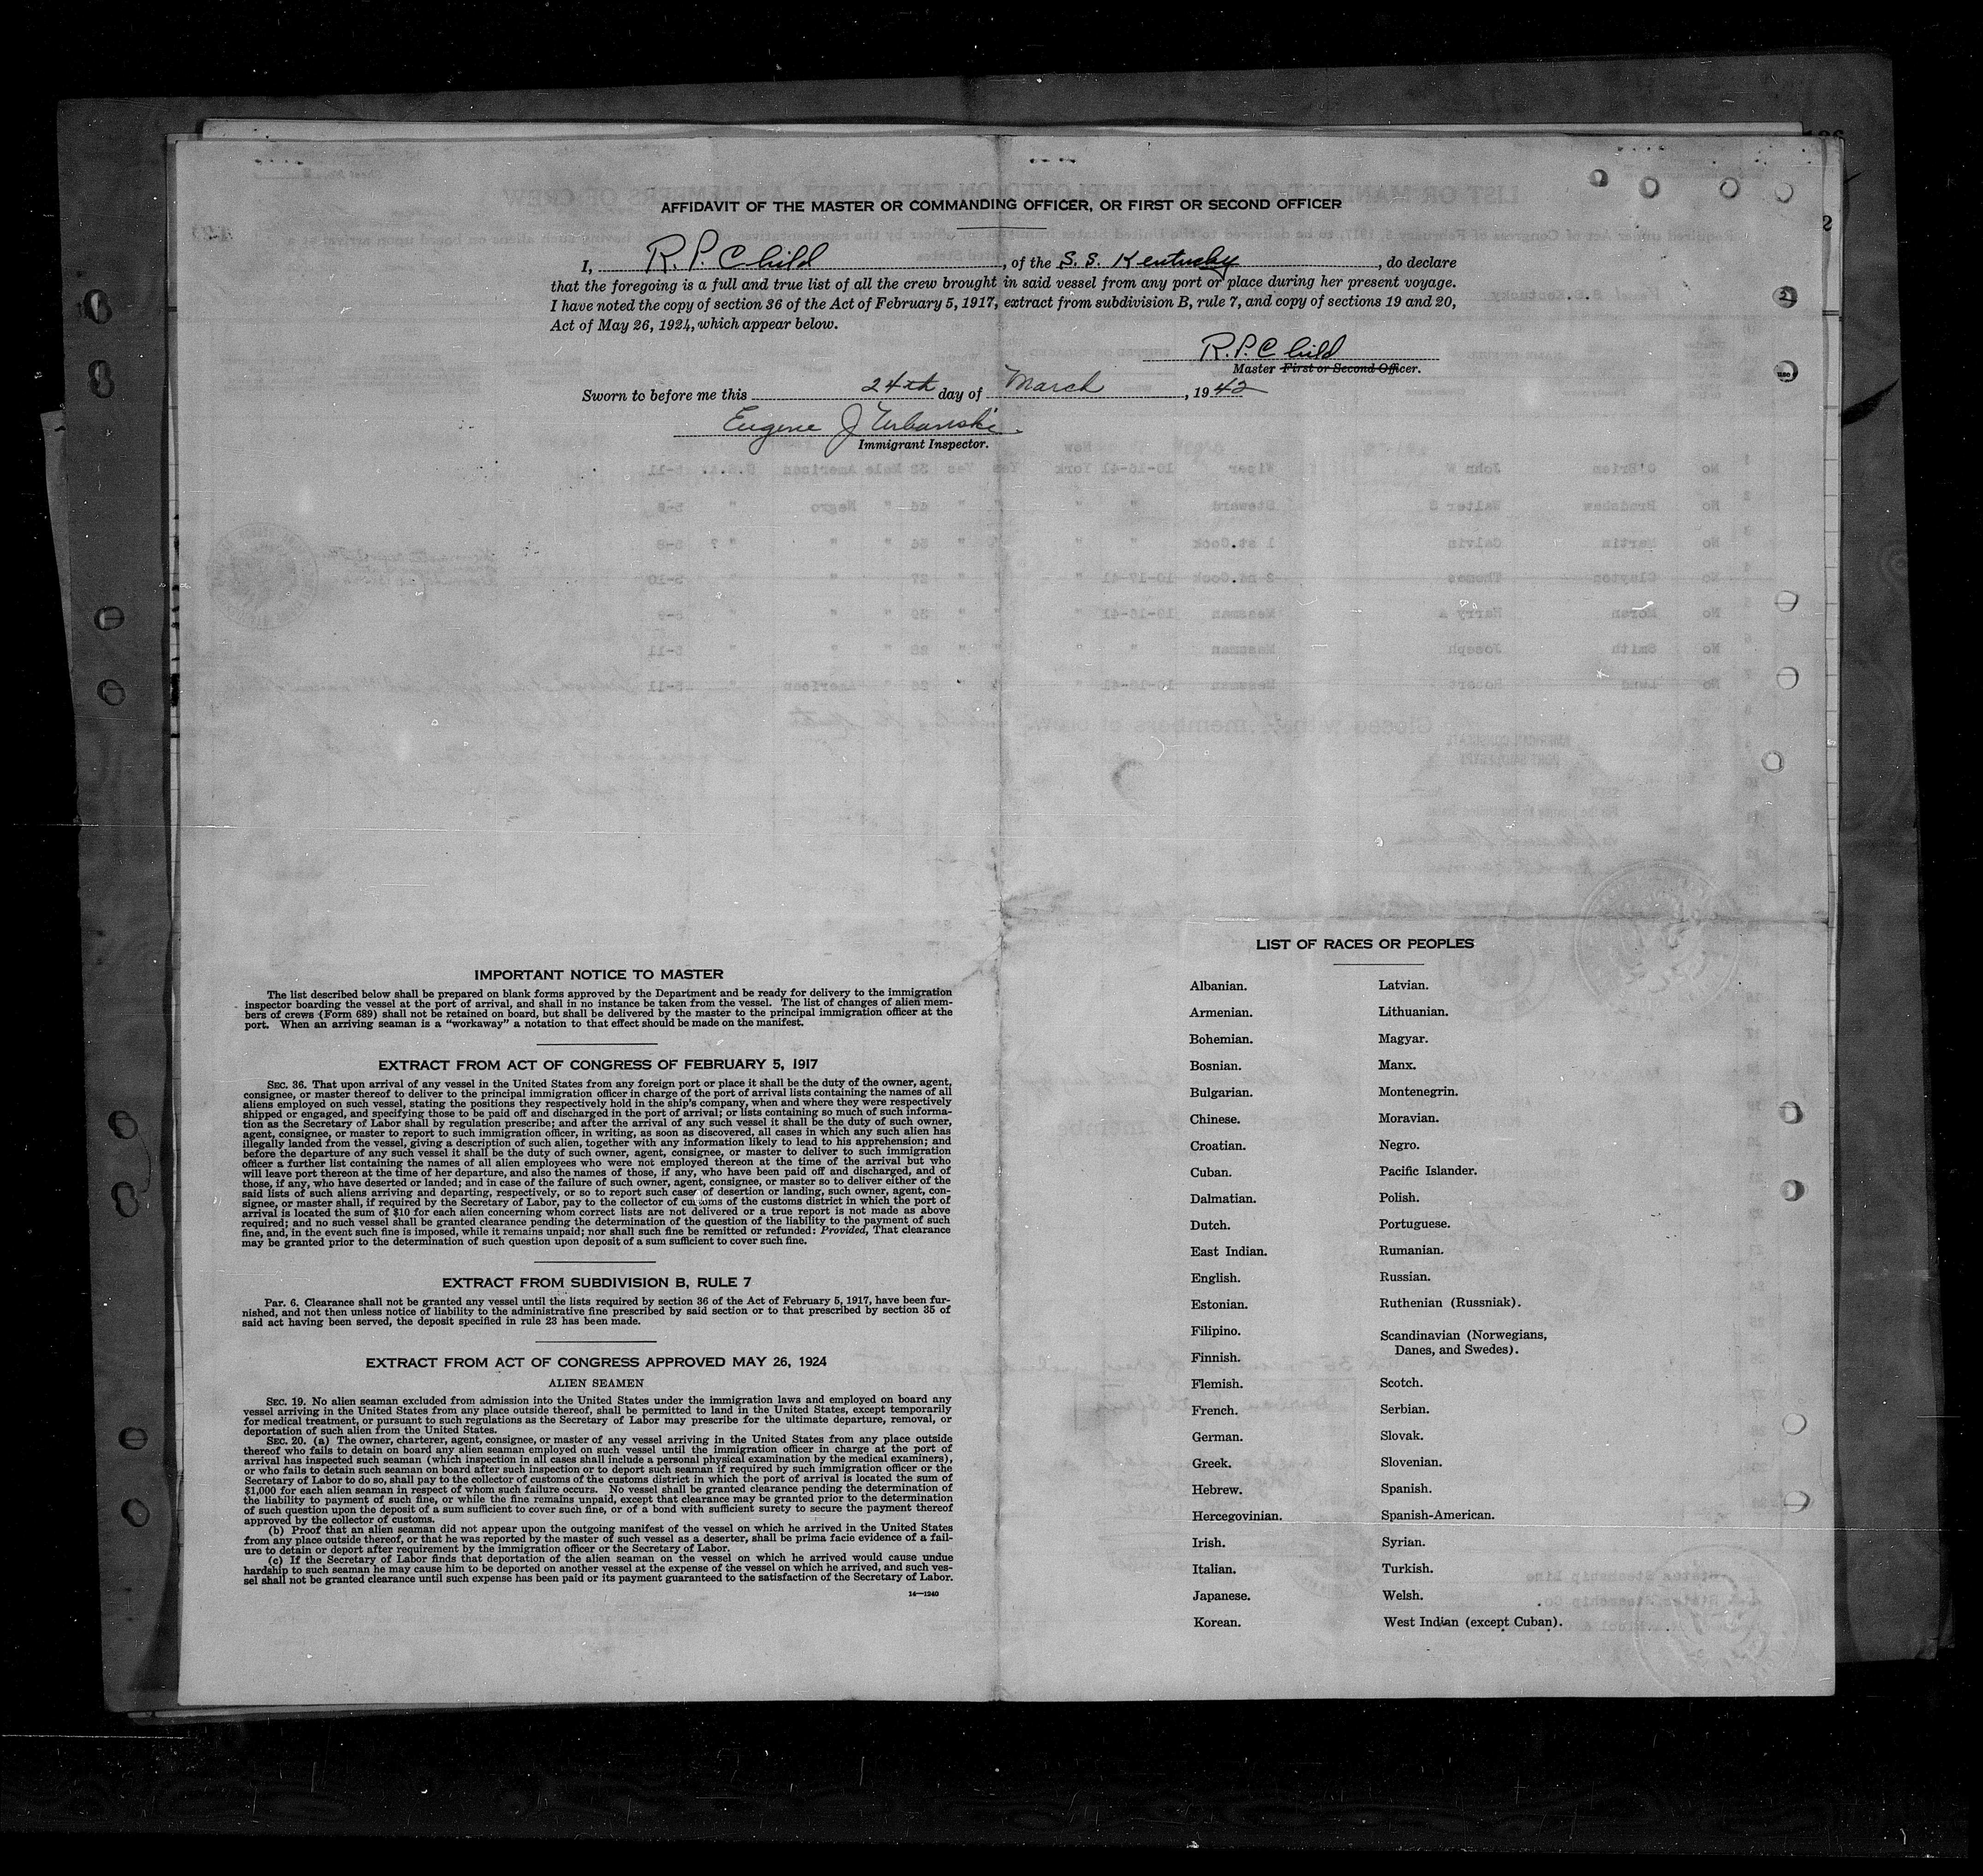 AFFIDAVIT OF THE MASTER OR COMMANDING OFFICER, OR FIRST OR SECOND OFFICER
I, R. P. Child, of the S. S. Kentucky, do declare
that the foregoing is a full and true list of all the crew brought in said vessel from any port or place during her present voyage.
I have noted the copy of section 36 of the Act of February 5, 1917, extract from subdivision B, rule 7, and copy of sections 19 and 20,
Act of May 26, 1924, which appear below.
R. P. Child
Master First or Second Officer.
Sworn to before me this 24th day of March, 1942
Eugene J Urbanski
Immigrant Inspector.
IMPORTANT NOTICE TO MASTER
The list described below shall be prepared on blank forms approved by the Department and be ready for delivery to the immigration
inspector boarding the vessel at the port of arrival, and shall in no instance be taken from the vessel. The list of changes of alien mem-
bers of crews (Form 689) shall not be retained on board, but shall be delivered by the master to the principal immigration officer at the
port. When an arriving seaman is a "workaway" a notation to that effect should be made on the manifest.
EXTRACT FROM ACT OF CONGRESS OF FEBRUARY 5, 1917
SEC. 36. That upon arrival of any vessel in the United States from any foreign port or place it shall be the duty of the owner, agent,
consignee, or master thereof to deliver to the principal immigration officer in charge of the port of arrival lists containing the names of all
aliens employed on such vessel, stating the positions they respectively hold in the ship's company, when and where they were respectively
shipped or engaged, and specifying those to be paid off and discharged in the port of arrival; or lists containing so much of such informa-
tion as the Secretary of Labor shall by regulation prescribe; and after the arrival of any such vessel it shall be the duty of such owner,
agent, consignee, or master to report to such immigration officer, in writing, as soon as discovered, all cases in which any such alien has
illegally landed from the vessel, giving a description of such alien, together with any information likely to lead to his apprehension; and
before the departure of any such vessel it shall be the duty of such owner, agent, consignee, or master to deliver to such immigration
officer a further list containing the names of all alien employees who were not employed thereon at the time of the arrival but who
will leave port thereon at the time of her departure, and also the names of those, if any, who have been paid off and discharged, and of
those, if any, who have deserted or landed; and in case of the failure of such owner, agent, consignee, or master so to deliver either of the
said lists of such aliens arriving and departing, respectively, or so to report such cases of desertion or landing, such owner, agent, con-
signee, or master shall, if required by the Secretary of Labor, pay to the collector of customs of the customs district in which the port of
arrival is located the sum of $10 for each alien concerning whom correct lists are not delivered or a true report is not made as above
required; and no such vessel shall be granted clearance pending the determination of the question of the liability to the payment of such
fine, and, in the event such fine is imposed, while it remains unpaid; nor shall such fine be remitted or refunded: Provided, That clearance
may be granted prior to the determination of such question upon deposit of a sum sufficient to cover such fine.
EXTRACT FROM SUBDIVISION B, RULE 7
Par. 6. Clearance shall not be granted any vessel until the lists required by section 36 of the Act of February 5, 1917, have been fur-
nished, and not then unless notice of liability to the administrative fine prescribed by said section or to that prescribed by section 35 of
said act having been served, the deposit specified in rule 23 has been made.
EXTRACT FROM ACT OF CONGRESS APPROVED MAY 26, 1924
ALIEN SEAMEN
SEC. 19. No alien seaman excluded from admission into the United States under the immigration laws and employed on board any
vessel arriving in the United States from any place outside thereof, shall be permitted to land in the United States, except temporarily
for medical treatment, or pursuant to such regulations as the Secretary of Labor may prescribe for the ultimate departure, removal, or
deportation of such alien from the United States.
SEC. 20. (a) The owner, charterer, agent, consignee, or master of any vessel arriving in the United States from any place outside
thereof who fails to detain on board any alien seaman employed on such vessel until the immigration officer in charge at the port of
arrival has inspected such seaman (which inspection in all cases shall include a personal physical examination by the medical examiners),
or who fails to detain such seaman on board after such inspection or to deport such seaman if required by such immigration officer or the
Secretary of Labor to do so, shall pay to the collector of customs of the customs district in which the port of arrival is located the sum of
$1,000 for each alien seaman in respect of whom such failure occurs. No vessel shall be granted clearance pending the determination of
the liability to payment of such fine, or while the fine remains unpaid, except that clearance may be granted prior to the determination
of such question upon the deposit of a sum sufficient to cover such fine, or of a bond with sufficient surety to secure the payment thereof
approved by the collector of customs.
(b) Proof that an alien seaman did not appear upon the outgoing manifest of the vessel on which he arrived in the United States
from any place outside thereof, or that he was reported by the master of such vessel as a deserter, shall be prima facie evidence of a fail-
ure to detain or deport after requirement by the immigration officer or the Secretary of Labor.
(c) If the Secretary of Labor finds that deportation of the alien seaman on the vessel on which he arrived would cause undue
hardship to such seaman he may cause him to be deported on another vessel at the expense of the vessel on which he arrived, and such ves-
sel shall not be granted clearance until such expense has been paid or its payment guaranteed to the satisfaction of the Secretary of Labor.
14—1240
LIST OF RACES OR PEOPLES
Albanian.
Armenian.
Bohemian.
Bosnian.
Bulgarian.
Chinese.
Croatian.
Cuban.
Dalmatian.
Dutch.
East Indian.
English.
Estonian.
Filipino.
Finnish.
Flemish.
French.
German.
Greek.
Hebrew.
Hercegovinian.
Irish.
Italian.
Japanese.
Korean.
Latvian.
Lithuanian.
Magyar.
Manx.
Montenegrin.
Moravian.
Negro.
Pacific Islander.
Polish.
Portuguese.
Rumanian.
Russian.
Ruthenian (Russniak).
Scandinavian (Norwegians,
Danes, and Swedes).
Scotch.
Serbian.
Slovak.
Slovenian.
Spanish.
Spanish-American.
Syrian.
Turkish.
Welsh.
West Indian (except Cuban).